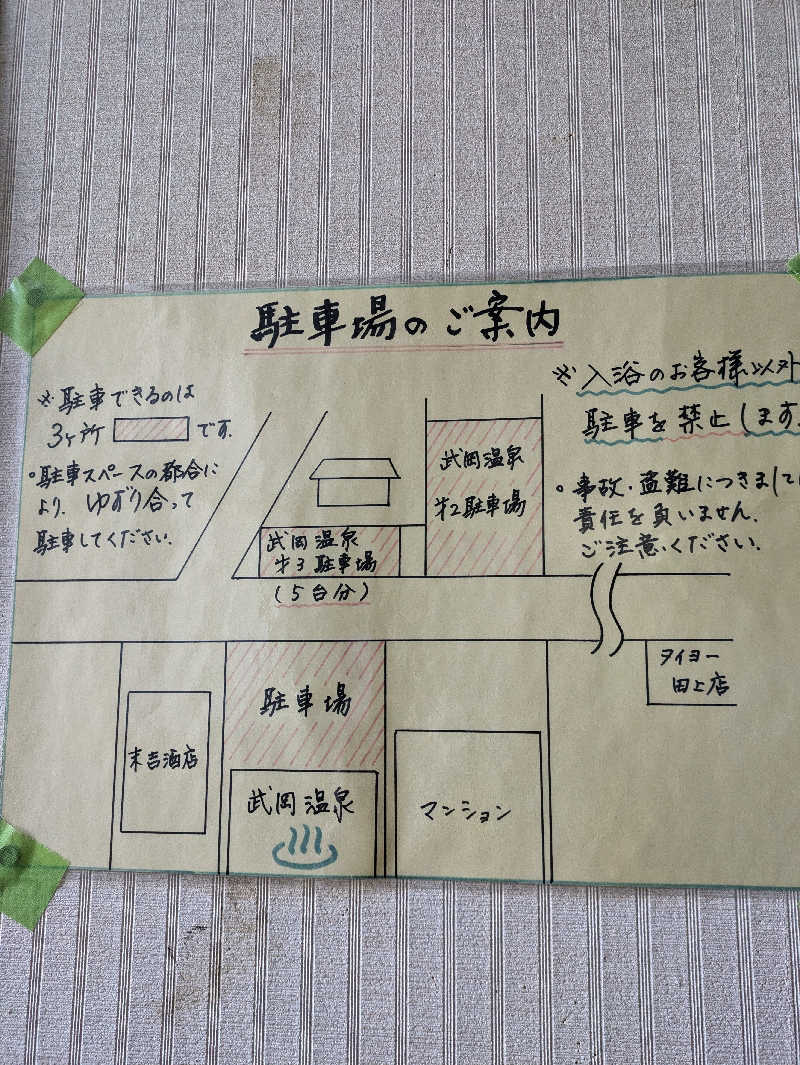 駐車場のご案内
※駐車できるのは
3ヶ所 です.
。駐車スペースの都合に
より、ゆずり合って
駐車してください.
※入浴のお客様以外
駐車を禁止します.
。事故・盗難につきまして
責任を負いません.
ご注意ください.
武岡温泉
㐧2駐車場
武岡温泉
㐧3駐車場
(5台分)
タイヨー
田上店
駐車場
末吉酒店
武岡温泉
マンション